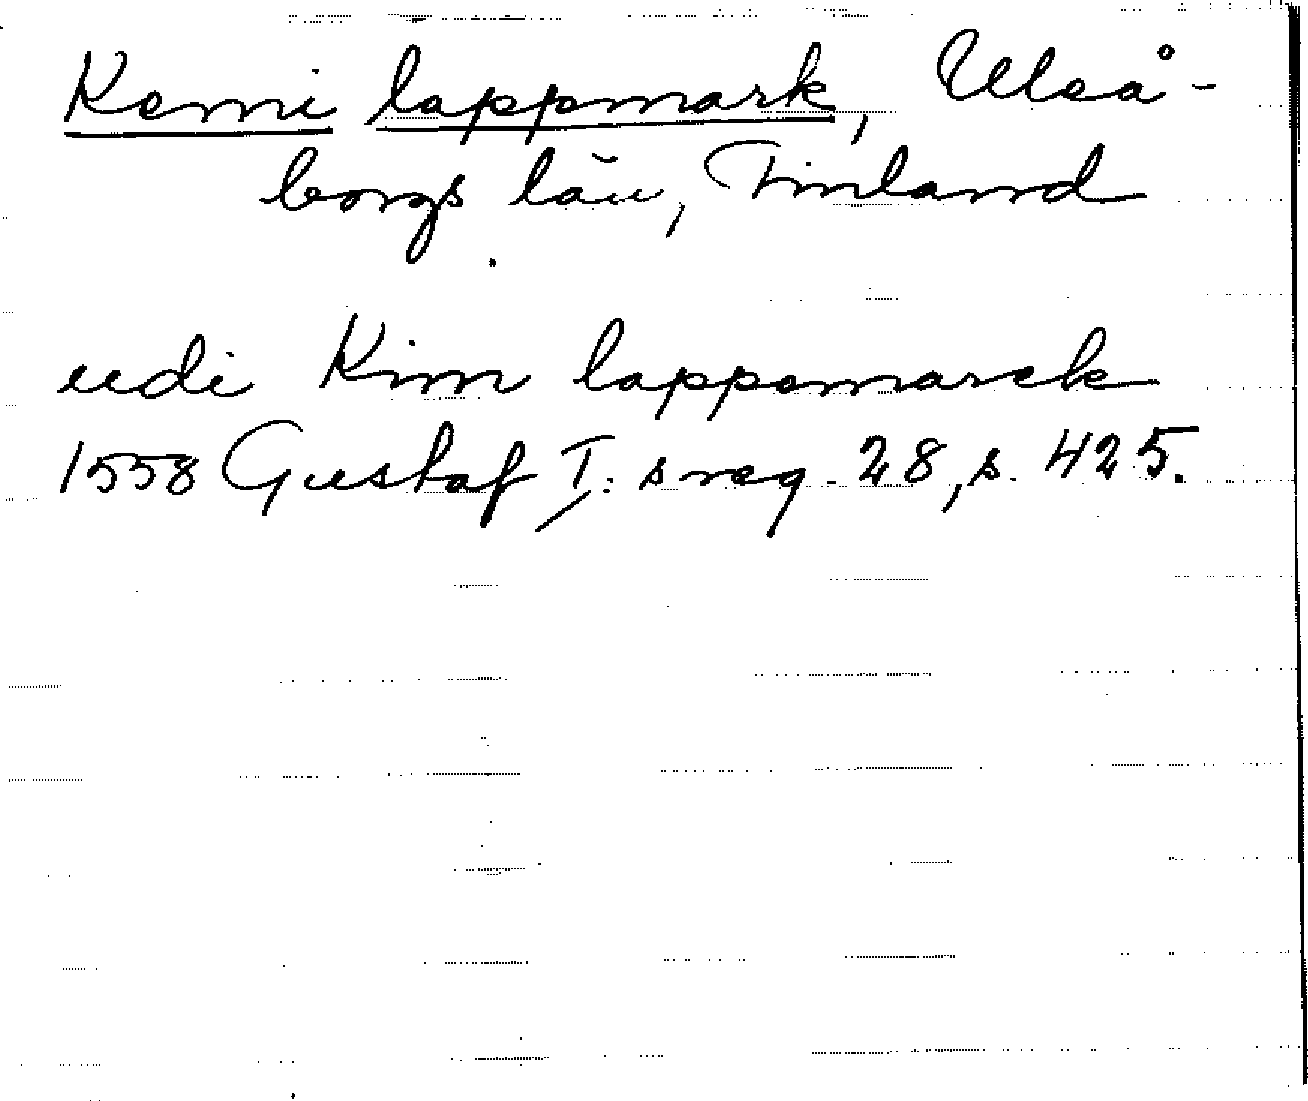 Kemi lappmark, Uleå-
borgs län, Finland
udi Kim lappemarck
1558 Gustaf I:s reg. 28, s. 425.